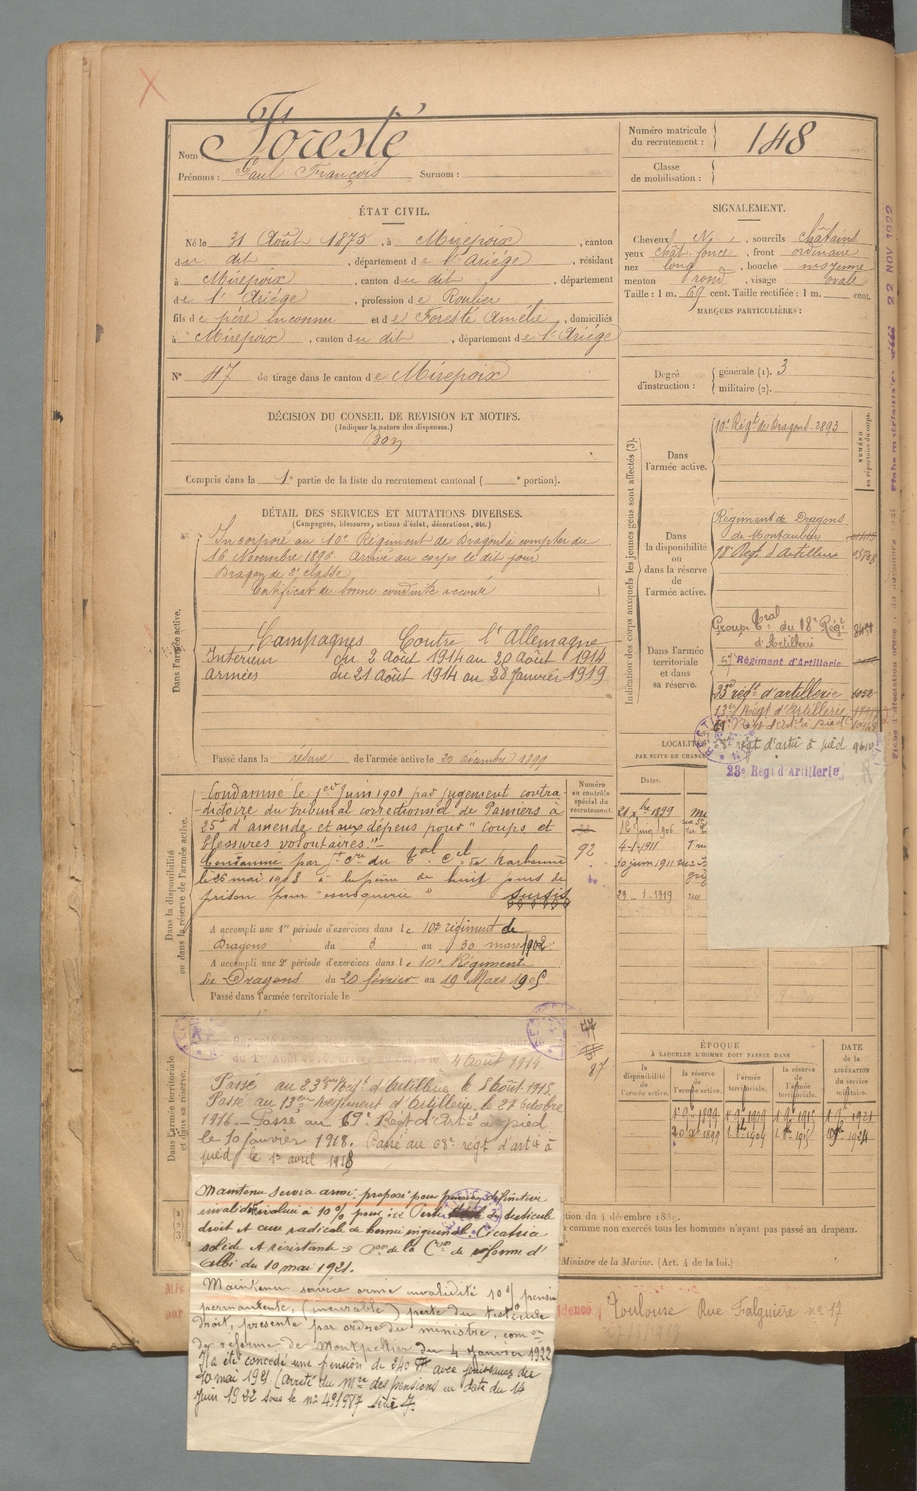 Nom Foresté
Prénoms : Paul François Surnom :
Numéro matricule du recrutement : 148
Classe de mobilisation :
ÉTAT CIVIL.
Né le 31 Août 1875, à Mirepoix, canton
du dit, département de l'Ariège, résidant
à Mirepoix, canton du dit, département
de l'Ariège, profession de Roulier
fils de père inconnu et de Foresté Amélie, domiciliés
à Mirepoix, canton du dit, département de l'Ariège
N° 47 de tirage dans le canton de Mirepoix
SIGNALEMENT.
Cheveux N, sourcils châtains
yeux chât. foncé, front ordinaire
nez long, bouche moyenne
menton rond, visage ovale
Taille : 1 m. 69 cent. Taille rectifiée : 1 m. cent.
MARQUES PARTICULIÈRES :
Degré d'instruction : générale (1). 3
militaire (2).
DÉCISION DU CONSEIL DE REVISION ET MOTIFS.
(Indiquer la nature des dispenses.)
Bon
Compris dans la 1e partie de la liste du recrutement cantonal ( e portion).
DÉTAIL DES SERVICES ET MUTATIONS DIVERSES.
(Campagnes, blessures, actions d'éclat, décorations, etc.)
Dans l'armée active.
Incorporé au 10e Régiment de Dragons à compter du
16 Novembre 1896. Arrivé au corps le dit jour
Dragon de 2e classe
Certificat de bonne conduite accordé
Campagnes Contre l'Allemagne
Intérieur du 2 Août 1914 au 20 Août 1914
Armées du 21 Août 1914 au 28 Janvier 1919
Passé dans la réserve de l'armée active le 20 décembre 1899
Indication des corps auxquels les jeunes gens sont affectés (3).
NUMÉRO au répertoire du corps.
Dans l'armée active.
10e Régt de Dragons 2893
Dans la disponibilité ou dans la réserve de l'armée active.
Régiment de Dragons
de Montauban
18e Régt d'Artillerie
Dans l'armée territoriale et dans sa réserve.
Groupe Tral du 18e Régt
d'Artillerie
57e Régiment d'Artillerie
23e régt d'artillerie
13e Régt d'Artillerie
69e Régt d'Artie à pied
68e régt d'artie à pied
23e Régt d'Artillerie
LOCALITÉS
PAR SUITE DE CHANGE
Dates.
4-1-1911
30 juin 1911
29-1-1919 rue
Dans la disponibilité ou dans la réserve de l'armée active.
Numéro au contrôle spécial du recrutement.
92
Condamné le 1er Juin 1901 par jugement contra
-dictoire du tribunal correctionnel de Pamiers à
25f d'amende et aux dépens pour "Coups et
blessures volontaires."
Condamné par jt cre du Tal cel de Narbonne
le 25 mai 1908 à la peine de huit jours de
prison pour "escroquerie" sursis
A accompli une 1re période d'exercices dans le 10e régiment de
Dragons du 3 au 30 mars 1902.
A accompli une 2e période d'exercices dans le 10e Régiment
de Dragons du 20 février au 19 Mars 1905
Passé dans l'armée territoriale le
Dans l'armée territoriale et dans sa réserve.
87
4 Août 1914
Passé au 23ème Régt d'Artillerie, le 5 Août 1915
Passé au 13ème Régiment d'Artillerie, le 27 Octobre
1916 — Passé au 69e Régt d'Artie à pied
le 10 janvier 1918. Passé au 68e régt d'artie à
pied le 1er avril 1918
Maintenu service armé, proposé pour pension définitive
invalidité évaluée à 10% pour : Perte du testicule
droit et cure radicale de hernie inguinale. Cicatrice
solide et résistante = Don de la Con de réforme d'
Albi du 10 mai 1921.
Maintenu service armé invalidité 10% pension
permanente, (incurable) perte du testicule
droit, présenté par ordre du ministre, com on
de réforme de Montpellier du 4 Janvier 1922
Il a été concédé une pension de 240 F avec jouissance du
10 mai 1921. (arrêté du Mre des pensions en date du 14
Juin 1922 sous le n° 491987 série 7.
ÉPOQUE
À LAQUELLE L'HOMME DOIT PASSER DANS
la disponibilité de l'armée active.
la réserve de l'armée active.
l'armée territoriale.
la réserve de l'armée territoriale.
DATE de la LIBÉRATION du service militaire.
ction du 4 décembre 18
a comme non exercés tous les hommes n'ayant pas passé au drapeau.
Ministre de la Marine. (Art. 4 de la loi.)
idence, Toulouse Rue Falguière n° 17
22 NOV 1922